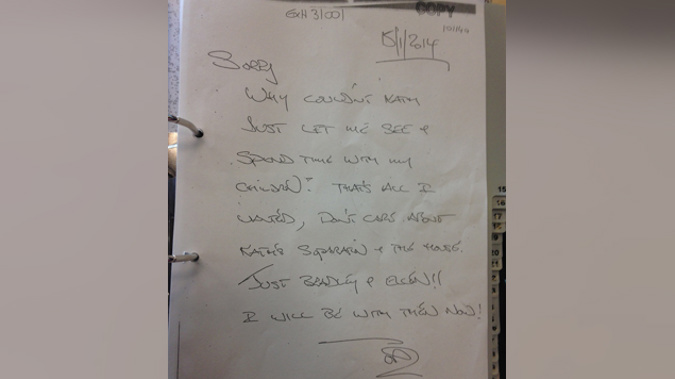 EXH 3/001
COPY
15/1/2014
SORRY
WHY COULDN'T KATH
JUST LET ME SEE &
SPEND TIME WITH MY
CHILDREN? THAT'S ALL I
WANTED, DON'T CARE ABOUT
KATH'S & THE HOUSE.
JUST BRADLEY & ELLEN!!
I WILL BE WITH THEM NOW!
15
16
17